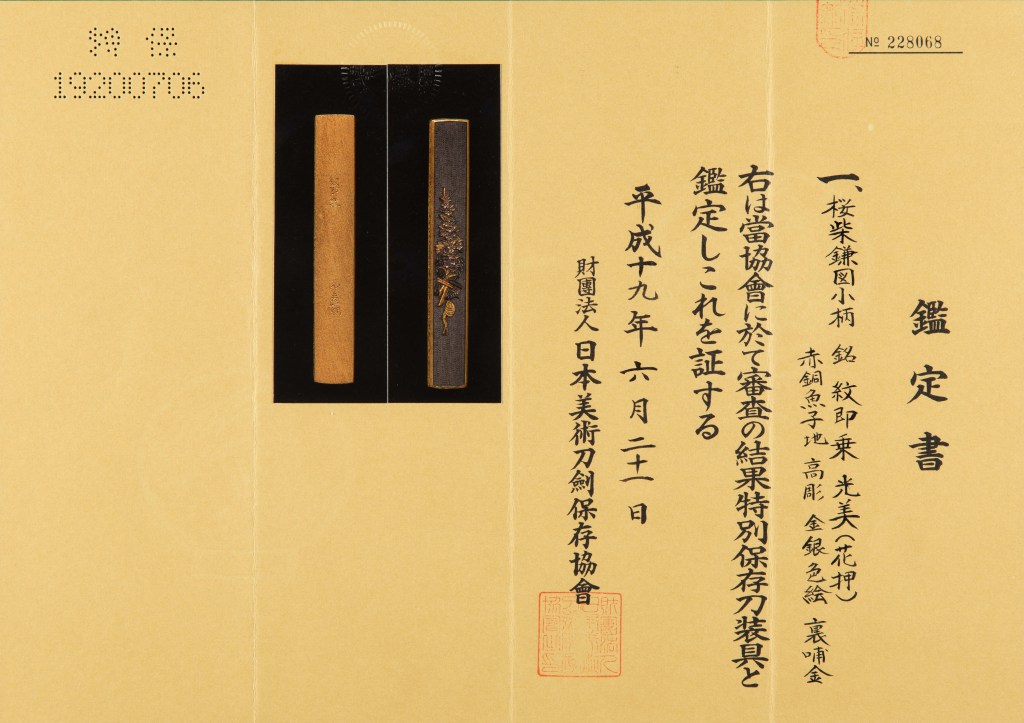 鑑定書
一、桜柴鎌図小柄 銘 紋即乗 光美(花押)
赤銅魚子地 高彫 金銀色絵 裏哺金
右は當協會に於て審査の結果特別保存刀装具と
鑑定しこれを証する
平成十九年六月二十一日
財團法人 日本美術刀劍保存協會
№ 228068
特保
19200706